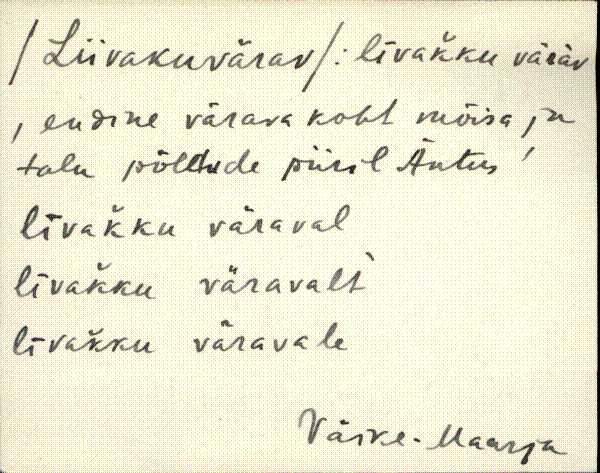 /Liivakuvärav/: līvak̆ku väràv
, endine värava koht mõisa ja
talu põldude piiril Äntus'
līvak̆ku väraval
līvak̆ku väravalt̀
līvak̆ku väravale
Väike-Maarja